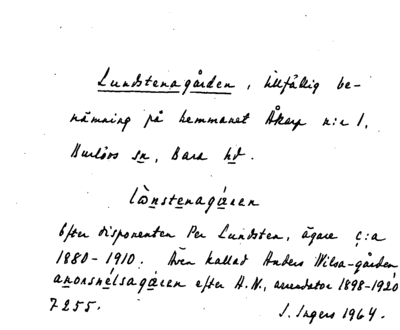 Lundstenagården, tillfällig be-
nämning på hemmanet Åkarp n:r 1,
Burlövs sn, Bara hd.
lònstenagáren
Efter disponenten Per Lundsten, ägare c:a
1880-1910. Även kallad Anders Nilsa-gården,
anorsnélsagáren efter A.N., arrendator 1898-1920
7255. J. Ingers 1964.